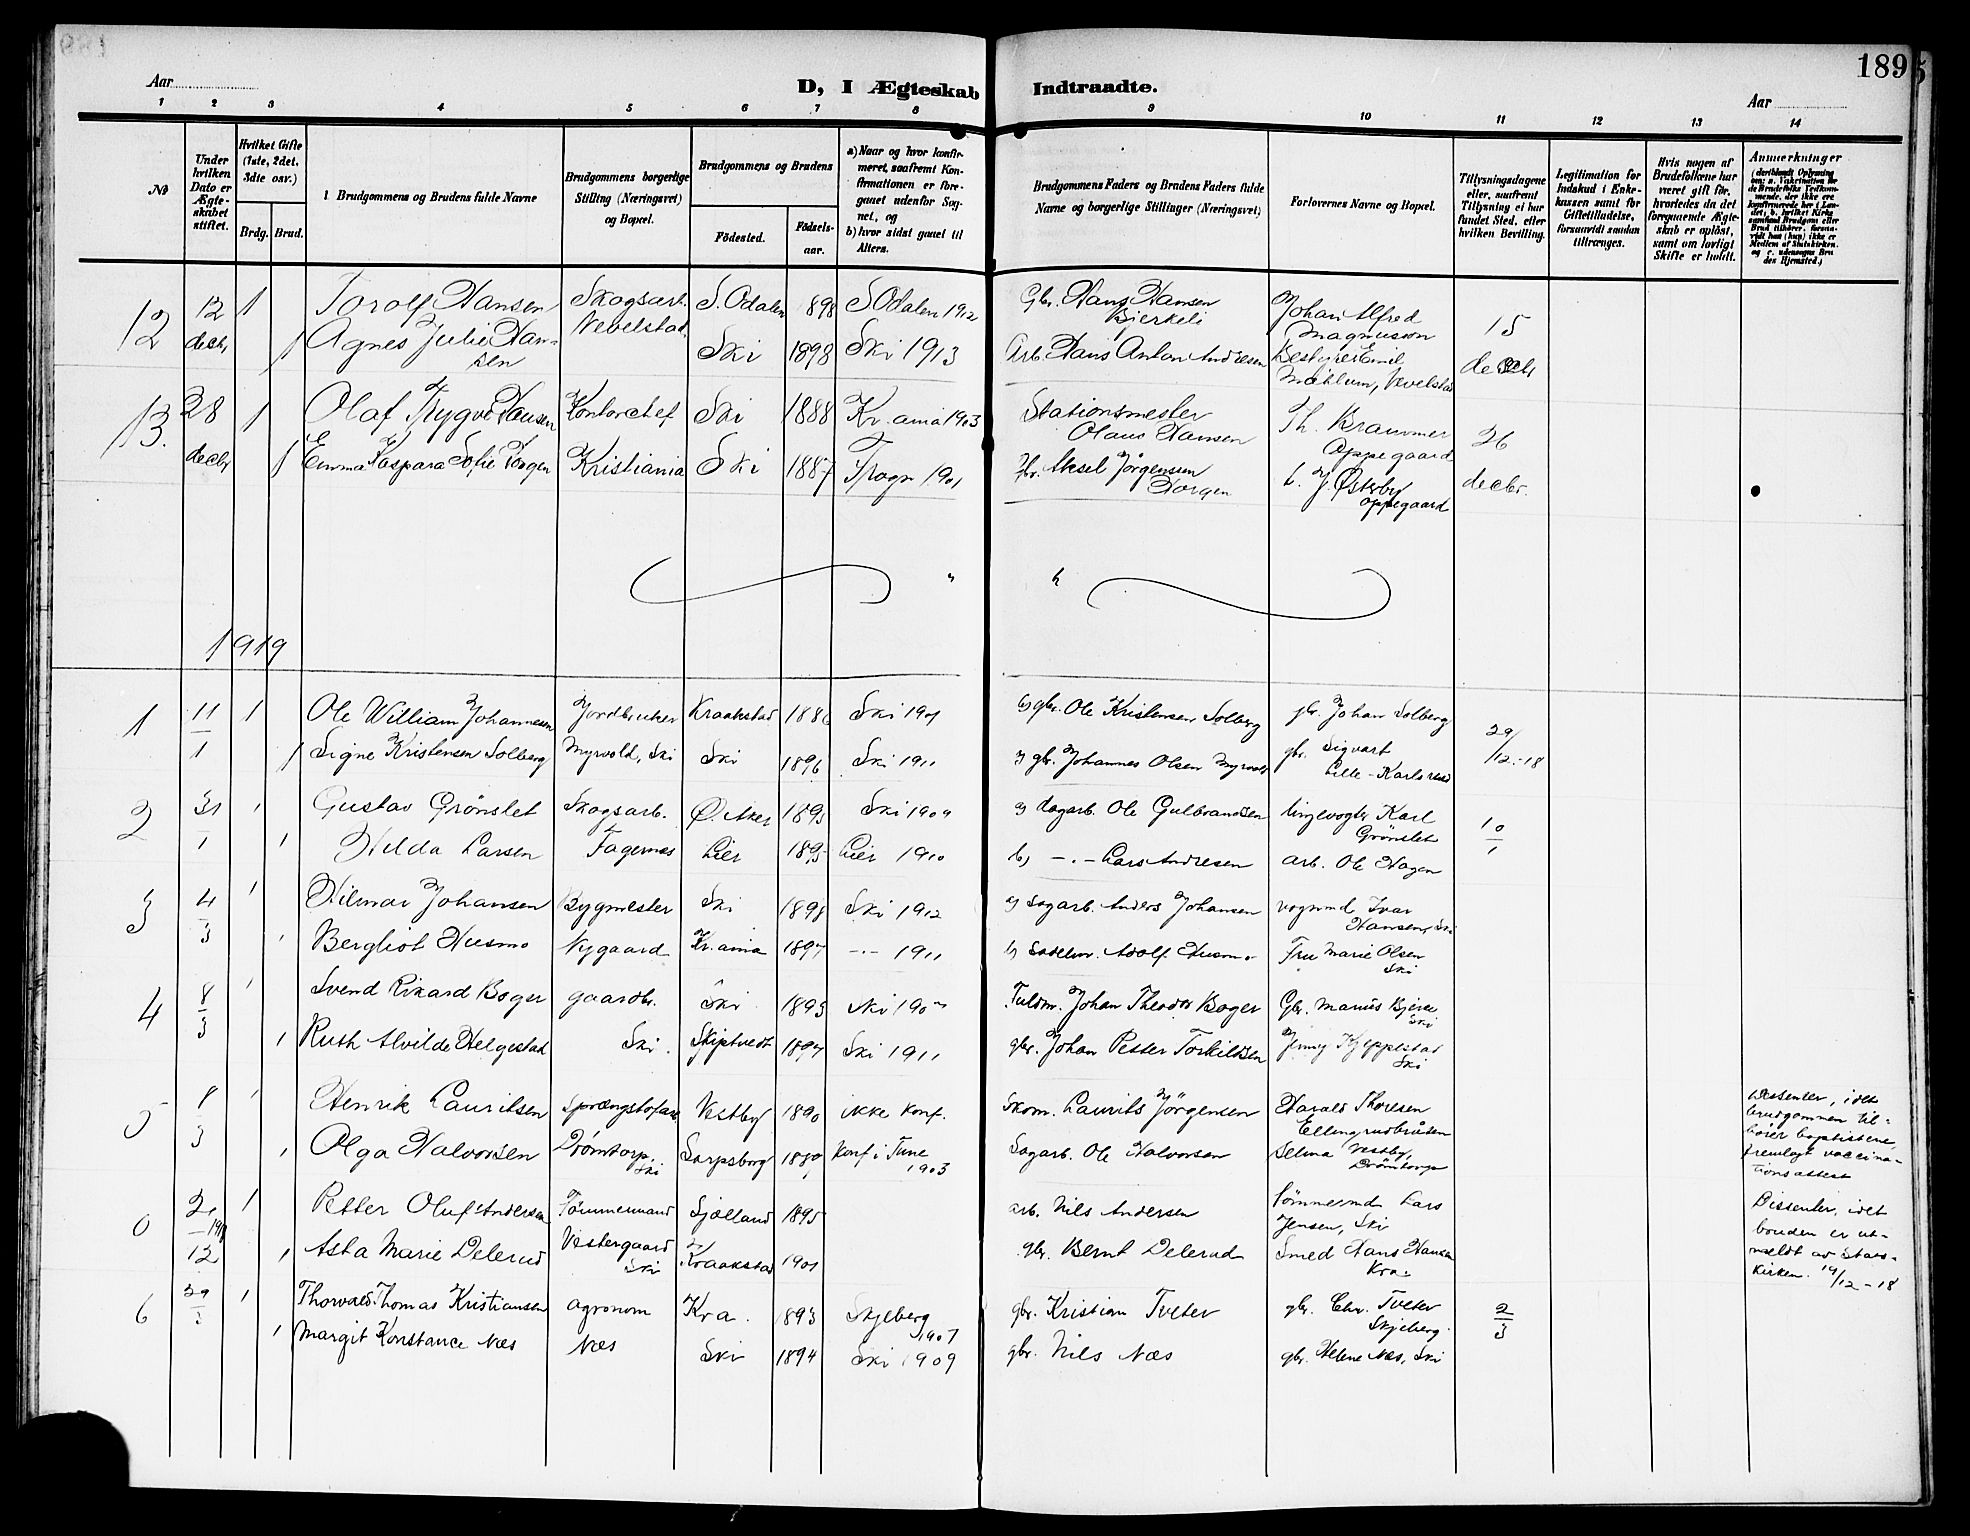 189
Aar
D, I Ægteskab Indtraadte.
Aar
1 2 3 4 5 6 7 8 9 10 11 12 13 14
No
Under hvilken Dato er Ægteskabet stiftet.
Hvilket Gifte (1ste, 2det, 3die osv.)
Brdg. Brud.
Brudgommens og Brudens fulde Navne
Brudgommens borgerlige Stilling (Næringsvei) og Bopæl.
Brudgommens og Brudens
Fødested.
Fødselsaar.
a) Naar og hvor konfirmeret, saafremt Konfirmationen er foregaaet udenfor Sognet, og
b) hvor sidst gaaet til Alters.
Brudgommens Faders og Brudens Faders fulde Navne og borgerlige Stillinger (Næringsvei)
Forlovernes Navne og Bopæl.
Tillysningsdagene eller, saafremt Tillysning ei har fundet Sted, efter hvilken Bevilling.
Legitimation for Indskud i Enkekassen samt for Giftetilladelse, forsaavidt saadan tiltrænges.
Hvis nogen af Brudefolkene har været gift før, hvorledes da det foregaaende Ægteskab er opløst, samt om lovligt Skifte er holdt.
Anmerkninger
12 12 decbr 1 Torolf Hansen Skogsarb. S. Odalen 898 S Odalen 1912 Gbr. Hans Hansen Bierkeli Johan Alfred Magnusson 15
1 Agnes Julie Hansen Nevelstad Ski 1898 Ski 1913 Arb. Hans Anton Andresen Bestyrer Emil Mæhlum, Nevelstad decbr
13. 28 decbr 1 Olaf Trygve Hansen Kontorchef Ski 1888 Kr.ania 1903 Stationsmester Olaus Hansen Th. Brammer Oppegaard 26
1 Emma Kaspara Sofie Torgen Kristiania Ski 1887 Frogn 1901 Aksel Jørgensen Torgen J. Østerby Oppegaard decbr.
1919
1 11/1 1 Ole William Johannesen Jordbruker Kraakstad 1886 Ski 1901 b) gbr. Ole Kristensen Solberg gbr. Johan Solberg 29/12-18
1 Signe Kristensen Solberg Myrvold, Ski Ski 1896 Ski 1911 gbr. Johannes Olsen Myrvold gbr. Sigvart Lille-Karlsrud
2 31/1 1 Gustav Grønslet Skogsarb. Ø. Aker 1893 Ski 1909 a) dagarb. Ole Gulbrandsen linjevogter Karl Grønslet 10/1
1 Hilda Larsen Fagernes Lier 1895 Lier 1910 b) -.- Lars Andresen arb. Ole Hagen
3 4/3 1 Hilmar Johansen Bygmester Ski 1898 Ski 1912 a) Sagarb. Anders Johansen vognmd Ivar Hansen, Ski
1 Bergliot Husmo Nygaard Kr.ania 1897 -.- 1911 b) Sadelm. Adolf Husmo Fru Marie Olsen Ski
4 8/3 1 Svend Rikard Boger gaardbr. Ski 1893 Ski Fuldm. Johan Theodor Boger Gbr. Marius Bjerke Ski
1 Ruth Alvilde Helgestad Ski. Skiptvedt 1897 Ski 1911 gbr. Johan Petter Torkildsen Jenny Kjeppestad Ski
5 8/3 1 Henrik Lauritsen Sprængstofarb. Vestby 1890 ikke konf. Skom. Laurits Jørgensen Harald Thoresen Ellingrudbråten Dissenter, idet brudgommen tilhører baptistene, fremlagt vaccinationsattest
1 Olga Halvorsen Drømtorp, Ski Sarpsborg konf i Tune 1903 Sagarb. Ole Halvorsen Selma Vestby, Drømtorp
0 12 1 Petter Oluf Andersen Tømmermand Sjælland 1895 arb. Nils Andersen tømmermd Lars Jensen, Ski Dissenter, idet bruden er utmeldt av Statskirken. 19/12-18
1 Asta Marie Delerud Vestergaard Ski Kraakstad 1901 gbr. Bernt Delerud Smed Hans Hansen Kra.
6 29/3 1 Thorvald Thomas Kristiansen agronom Kra. 1893 Skjeberg 1907 gbr. Kristian Tveter gbr. Chr. Tveter Skjeberg. 2/3
1 Margit Konstance Næs Næs Ski 1894 Ski 1909 gbr. Nils Næs gbr. Helene Næs, Ski